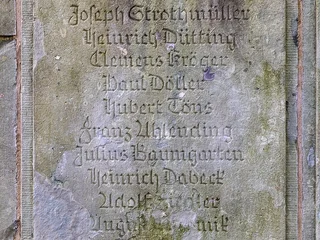 Joseph Strothmüller
Heinrich Dütting
Clemens Kröger
Paul Döller
Hubert Töns
Franz Uhlending
Julius Baumgarten
Heinrich Dabeck
Adolf
August